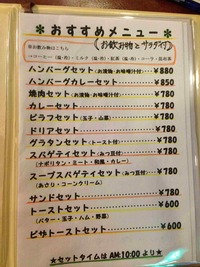 ✿おすすめメニュー✿
(お飲お物とサラダ付)
※お飲み物はこちら
ハンバーグセット(お漬物・お味噌汁付) ¥880
ハンバーグカレーセット ¥850
焼肉セット(お漬物・お味噌汁付) ¥780
カレーセット ¥780
ピラフセット(玉子・山菜) ¥780
ドリアセット ¥780
グラタンセット(トースト付) ¥780
スパゲティセット(みつ豆付) ¥780
(ナポリタン・ミート・朝風・カレー)
スープスパゲティセット(みつ豆付) ¥780
(あさり・コーンクリーム)
サンドセット ¥780
トーストセット ¥600
(バター・玉子・ハム・野菜)
ピザトーストセット ¥600
★セットタイムはAM:10:00より★